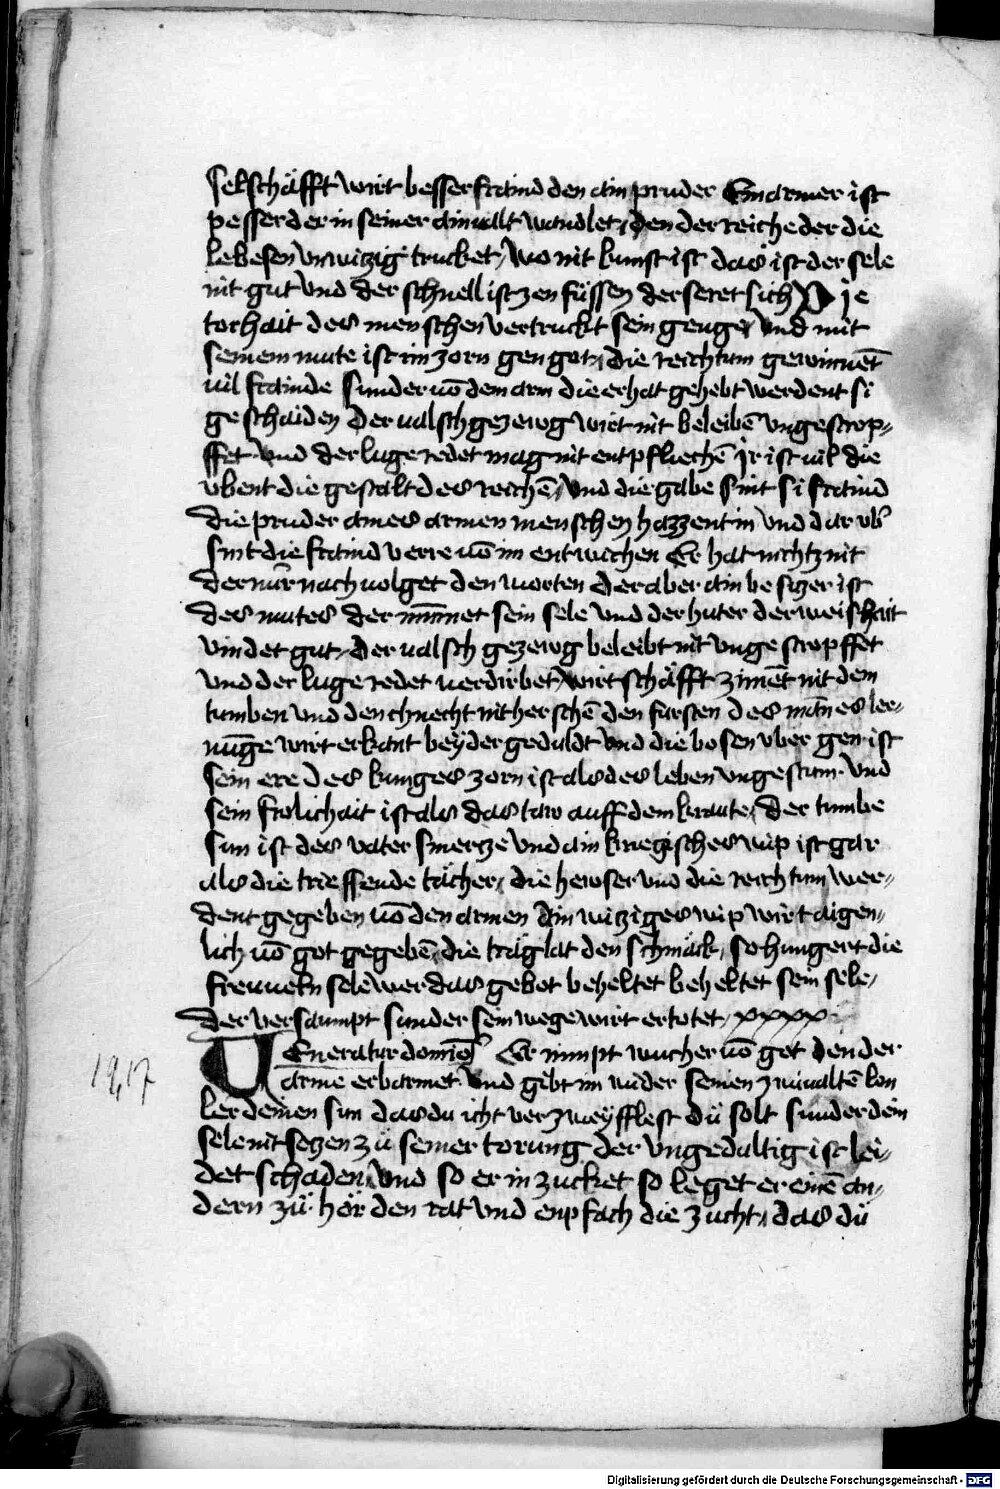 selschäfft wirt besser fraind den ain pruder Ein armer ist
pesser der in seiner ainualt wandlet, den der reiche der die
lebesen vnwitzig trucket, wo nit kunst ist das ist der sele
nit gut vnd der schnell ist zen füssen der seret sich Die
torhait des menschen vertruckt sein genge, vnd mit
seinem mute ist im zorn gen got, die reichtum gewinnēt
uil frainde sunder uō dem arm die er hat gehebt werdent si
geschaiden Der ualsch gezewg wirt nit beleibē vngestrop-
ffet vnd der luge redet mag nit entpfliechē Jr ist uil die
vbent die gestalt des reichē, vnd die gabe sint si fraind
die pruder aines armen menschen hazzent in vnd dar vb̄
sint die fraind verre uō im entwichen Er hat nichtz nit
der nŭr nach uolget den worten Der aber ain besitzer ist
des mutes der minnet sein sele vnd der huter der weishait
vindet gut, der ualsch gezewg beleibt nit vngestropffet
vnd der luge redet uerdirbet, wirtschäfft zimēt nit dem
tumben vnd den chnecht nit herschē den fürsten des mānes ler-
nuge wirt erkant bey der geduldt vnd die bosen vber gen ist
sein ere des kunges zorn ist als des leben vngestum vnd
sein frolichait ist als das taw auff dem kraute, der tumbe
sun ist des vater smertze vnd ain kriegisches wip ist gar
als die trieffende tächer, die hewser vnd die reichtum wer-
dent gegeben uō den armen Ain witziges wip wirt aigen-
lich uō got gegebē, die träg lat den schmack, so hungert die
freueln sele wer das gebot beheltet beheltet sein sele,
der versaumpt sunder sein wege wirt ertotet, xxxx
19,17
Feneratur domīo Er nimpt wucher uō got den der
arme erbarmet vnd gibt im wider seinen zwiualtē lon
ler deinen sun das du icht verzweyfflest dü solt sunder dein
sele nit setzen zü seiner torung der vngedultig ist lei-
det schaden, vnd so er in zucket so leget er einē an-
dern zü hör den rat vnd enpfach die zucht, das dü
Digitalisierung gefördert durch die Deutsche Forschungsgemeinschaft - DFG